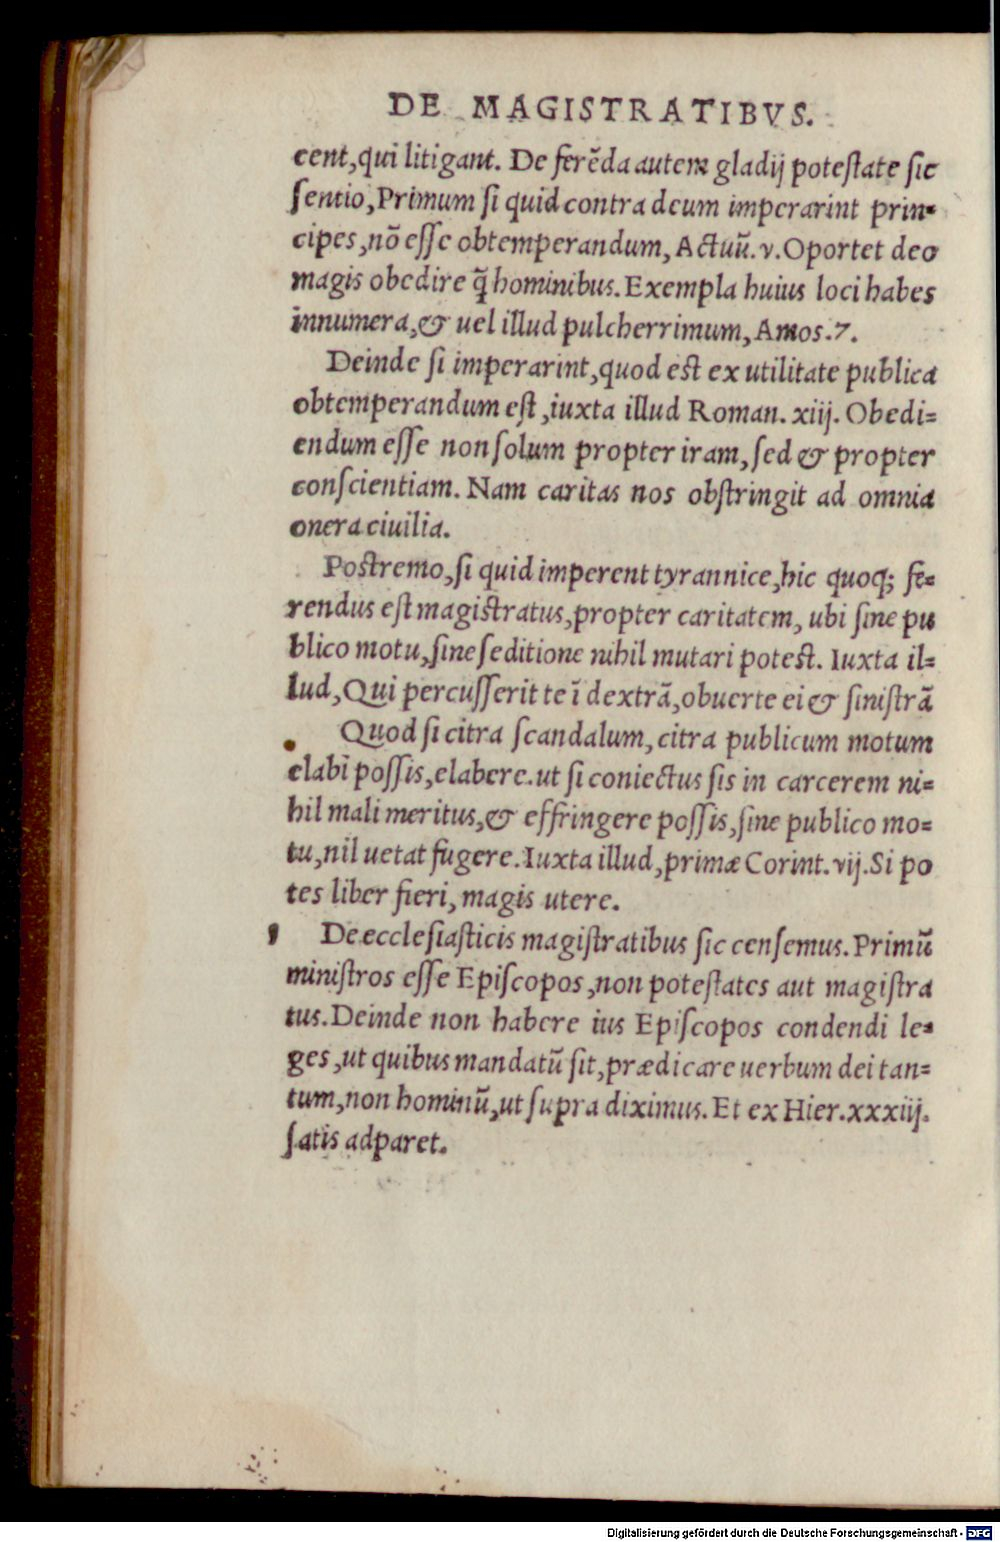 DE MAGISTRATIBVS.
cent,qui litigant. De ferẽda autem gladij poteſtate ſic
ſentio,Primum ſi quid contra deum imperarint prin-
cipes,nõ eſſe obtemperandum, Actuũ.v.Oportet deo
magis obedire q̃ hominibus.Exempla huius loci habes
innumera,& uel illud pulcherrimum,Amos.7.
Deinde ſi imperarint,quod eſt ex utilitate publica
obtemperandum eſt,iuxta illud Roman.xiij. Obedi-
endum eſſe non ſolum propter iram,ſed & propter
conſcientiam. Nam caritas nos obſtringit ad omnia
onera ciuilia.
Poſtremo,ſi quid imperent tyrannice,hic quoq; fe-
rendus eſt magiſtratus,propter caritatem, ubi ſine pu
blico motu,ſine ſeditione nihil mutari poteſt. Iuxta il-
lud,Qui percuſſerit te ĩ dextrã,obuerte ei & ſiniſtrã
Quod ſi citra ſcandalum,citra publicum motum
elabi poſſis,elabere.ut ſi coniectus ſis in carcerem ni-
hil mali meritus,& effringere poſſis,ſine publico mo-
tu,nil uetat fugere.Iuxta illud,primæ Corint.vij.Si po
tes liber fieri,magis utere.
De eccleſiaſticis magiſtratibus ſic cenſemus.Primũ
miniſtros eſſe Epiſcopos,non poteſtates aut magiſtra
tus.Deinde non habere ius Epiſcopos condendi le-
ges,ut quibus mandatũ ſit,prædicare uerbum dei tan-
tum,non hominũ,ut ſupra diximus.Et ex Hier.xxxiij.
ſatis adparet.
Digitalisierung gefördert durch die Deutsche Forschungsgemeinschaft - DFG